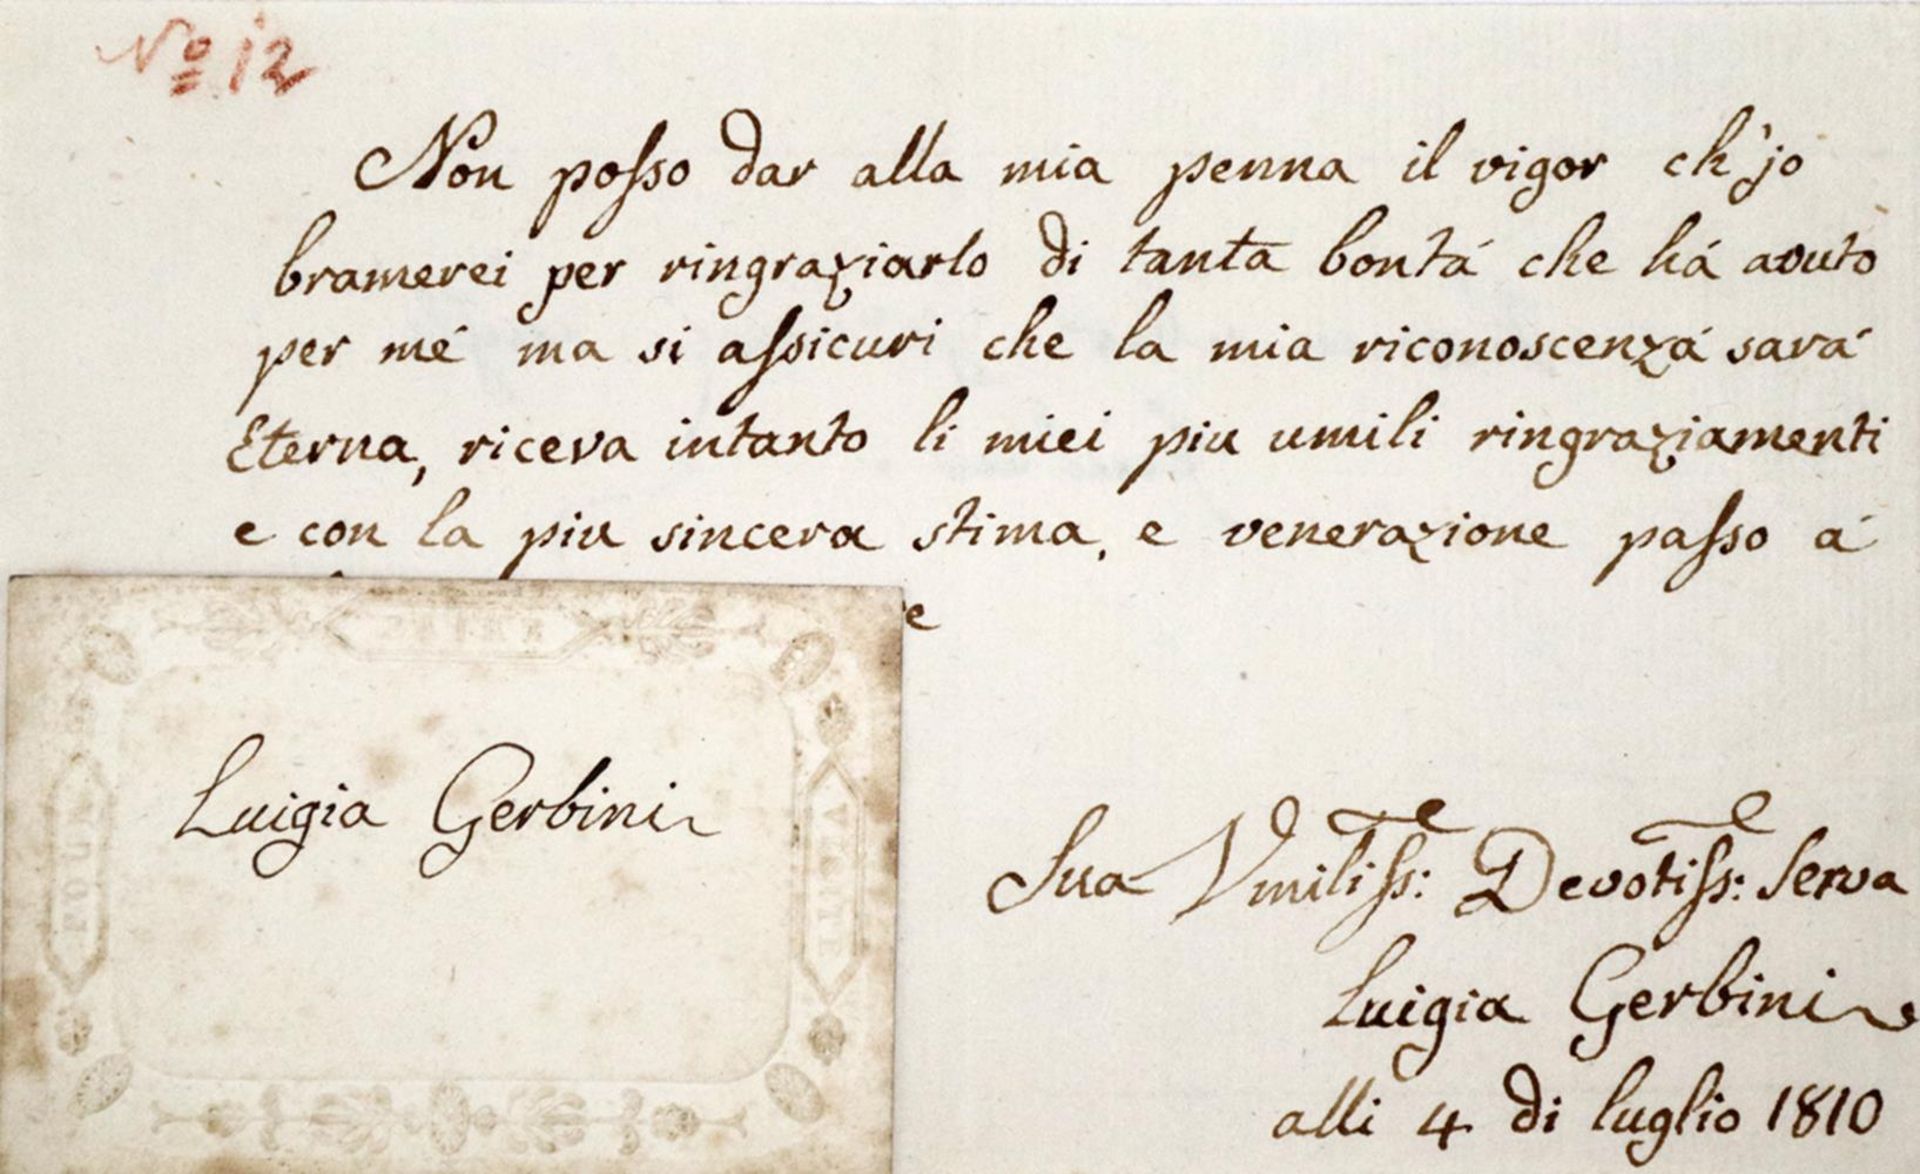 Nº 12
Non posso dar alla mia penna il vigor ch'jo
bramerei per ringraziarlo di tanta bontá che há avuto
per mé ma si assicuri che la mia riconoscenzá sará
Eterna, riceva intanto li miei piu umili ringraziamenti
e con la piu sincera stima, e venerazione passo á
Sua Vmiliss: Devotiss: Serva
Luigia Gerbini
alli 4 di luglio 1810
Luigia Gerbini